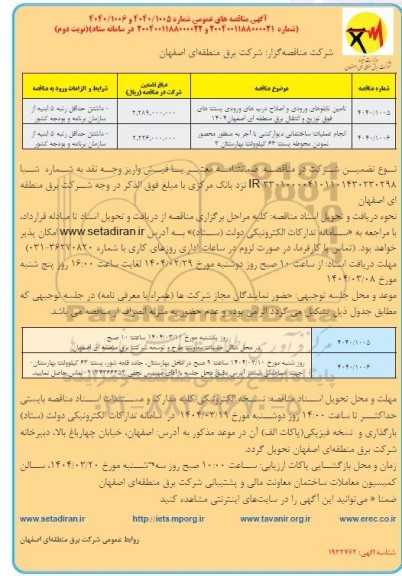 آگهی مناقصه های عمومی شماره ۴۰۴۰/۱۰۰۵ و ۴۰۴۰/۱۰۰۶
(شماره ۲۰۰۴۰۰۱۱۸۸۰۰۰۰۲۱ و ۲۰۰۴۰۰۱۱۸۸۰۰۰۰۲۲ در سامانه ستاد)(نوبت دوم)
شرکت مناقصه‌گزار: شرکت برق منطقه‌ای اصفهان
شماره مناقصه موضوع مناقصه مبلغ تضمین شرکت در مناقصه (ریال) شرایط و الزامات ورود به مناقصه
۴۰۴۰/۱۰۰۵ تامین تابلوهای ورودی و اصلاح درب های ورودی پست های فوق توزیع و انتقال برق منطقه ای اصفهان ۱۴۰۴ ۲,۲۸۹,۰۰۰,۰۰۰ - داشتن حداقل رتبه ۵ ابنیه از سازمان برنامه و بودجه کشور
۴۰۴۰/۱۰۰۶ انجام عملیات ساختمانی دیوارکشی با آجر به منظور محصور نمودن محوطه پست ۶۳ کیلوولت بهارستان ۳ ۲,۲۲۶,۰۰۰,۰۰۰ - داشتن حداقل رتبه ۵ ابنیه از سازمان برنامه و بودجه کشور
نوع تضمین شرکت در مناقصه: ضمانتنامه معتبر یا فیش واریز وجه نقد به شماره شبا
نزد بانک مرکزی با مبلغ فوق الذکر در وجه شرکت برق منطقه
ای اصفهان
نحوه دریافت و تحویل اسناد مناقصه: کلیه مراحل برگزاری مناقصه از دریافت و تحویل اسناد تا مبادله قرارداد،
با مراجعه به «سامانه تدارکات الکترونیکی دولت (ستاد)» به آدرس www.setadiran.ir امکان پذیر
خواهد بود. (تماس با کارفرما، در صورت لزوم در ساعات اداری روزهای کاری با شماره ۳۶۲۷۰۸۲۰-۰۳۱)
مهلت دریافت اسناد: از ساعت ۱۰ صبح روز دوشنبه مورخ ۱۴۰۴/۰۲/۲۹ لغایت ساعت ۱۶:۰۰ روز پنج شنبه
مورخ ۱۴۰۴/۰۳/۰۸
موعد و محل جلسه توجیهی: حضور نمایندگان مجاز شرکت ها (همراه با معرفی نامه) در جلسه توجیهی که
مطابق جدول ذیل تشکیل می گردد الزامی بوده و عدم حضور به منزله انصراف از مناقصه می باشد.
۴۰۴۰/۱۰۰۵ روز یکشنبه مورخ ۱۴۰۴/۰۳/۱۱ ساعت ۱۰ صبح
در محل سالن جلسات معاونت طرح و توسعه شرکت برق منطقه ای اصفهان
۴۰۴۰/۱۰۰۶ روز شنبه مورخ ۱۴۰۴/۰۳/۱۰ ساعت ۹ صبح در محل بهارستان، جاده قلعه شور، پست ۶۳ کیلوولت بهارستان.
مهلت و محل تحویل اسناد مناقصه: نسخه الکترونیکی کلیه مدارک و مستندات اسناد مناقصه بایستی
حداکثر تا ساعت ۱۴:۰۰ روز دوشنبه مورخ ۱۴۰۴/۰۳/۱۹ در سامانه تدارکات الکترونیکی دولت (ستاد)
بارگذاری و نسخه فیزیکی(پاکات الف) آن در موعد مذکور به آدرس: اصفهان، خیابان چهارباغ بالا، دبیرخانه
شرکت برق منطقه‌ای اصفهان تحویل گردد.
زمان و محل بازگشایی پاکات ارزیابی: ساعت ۱۰:۰۰ صبح روز سه‌شنبه مورخ ۱۴۰۴/۰۳/۲۰، سالن
کمیسیون معاملات ساختمان معاونت مالی و پشتیبانی شرکت برق منطقه‌ای اصفهان
ضمنا « می‌توانید این آگهی را در سایت‌های اینترنتی مشاهده کنید
www.setadiran.ir http://iets.mporg.ir www.tavanir.org.ir www.erec.co.ir
روابط عمومی شرکت برق منطقه‌ای اصفهان
شناسه آگهی: ۱۹۲۲۷۶۲